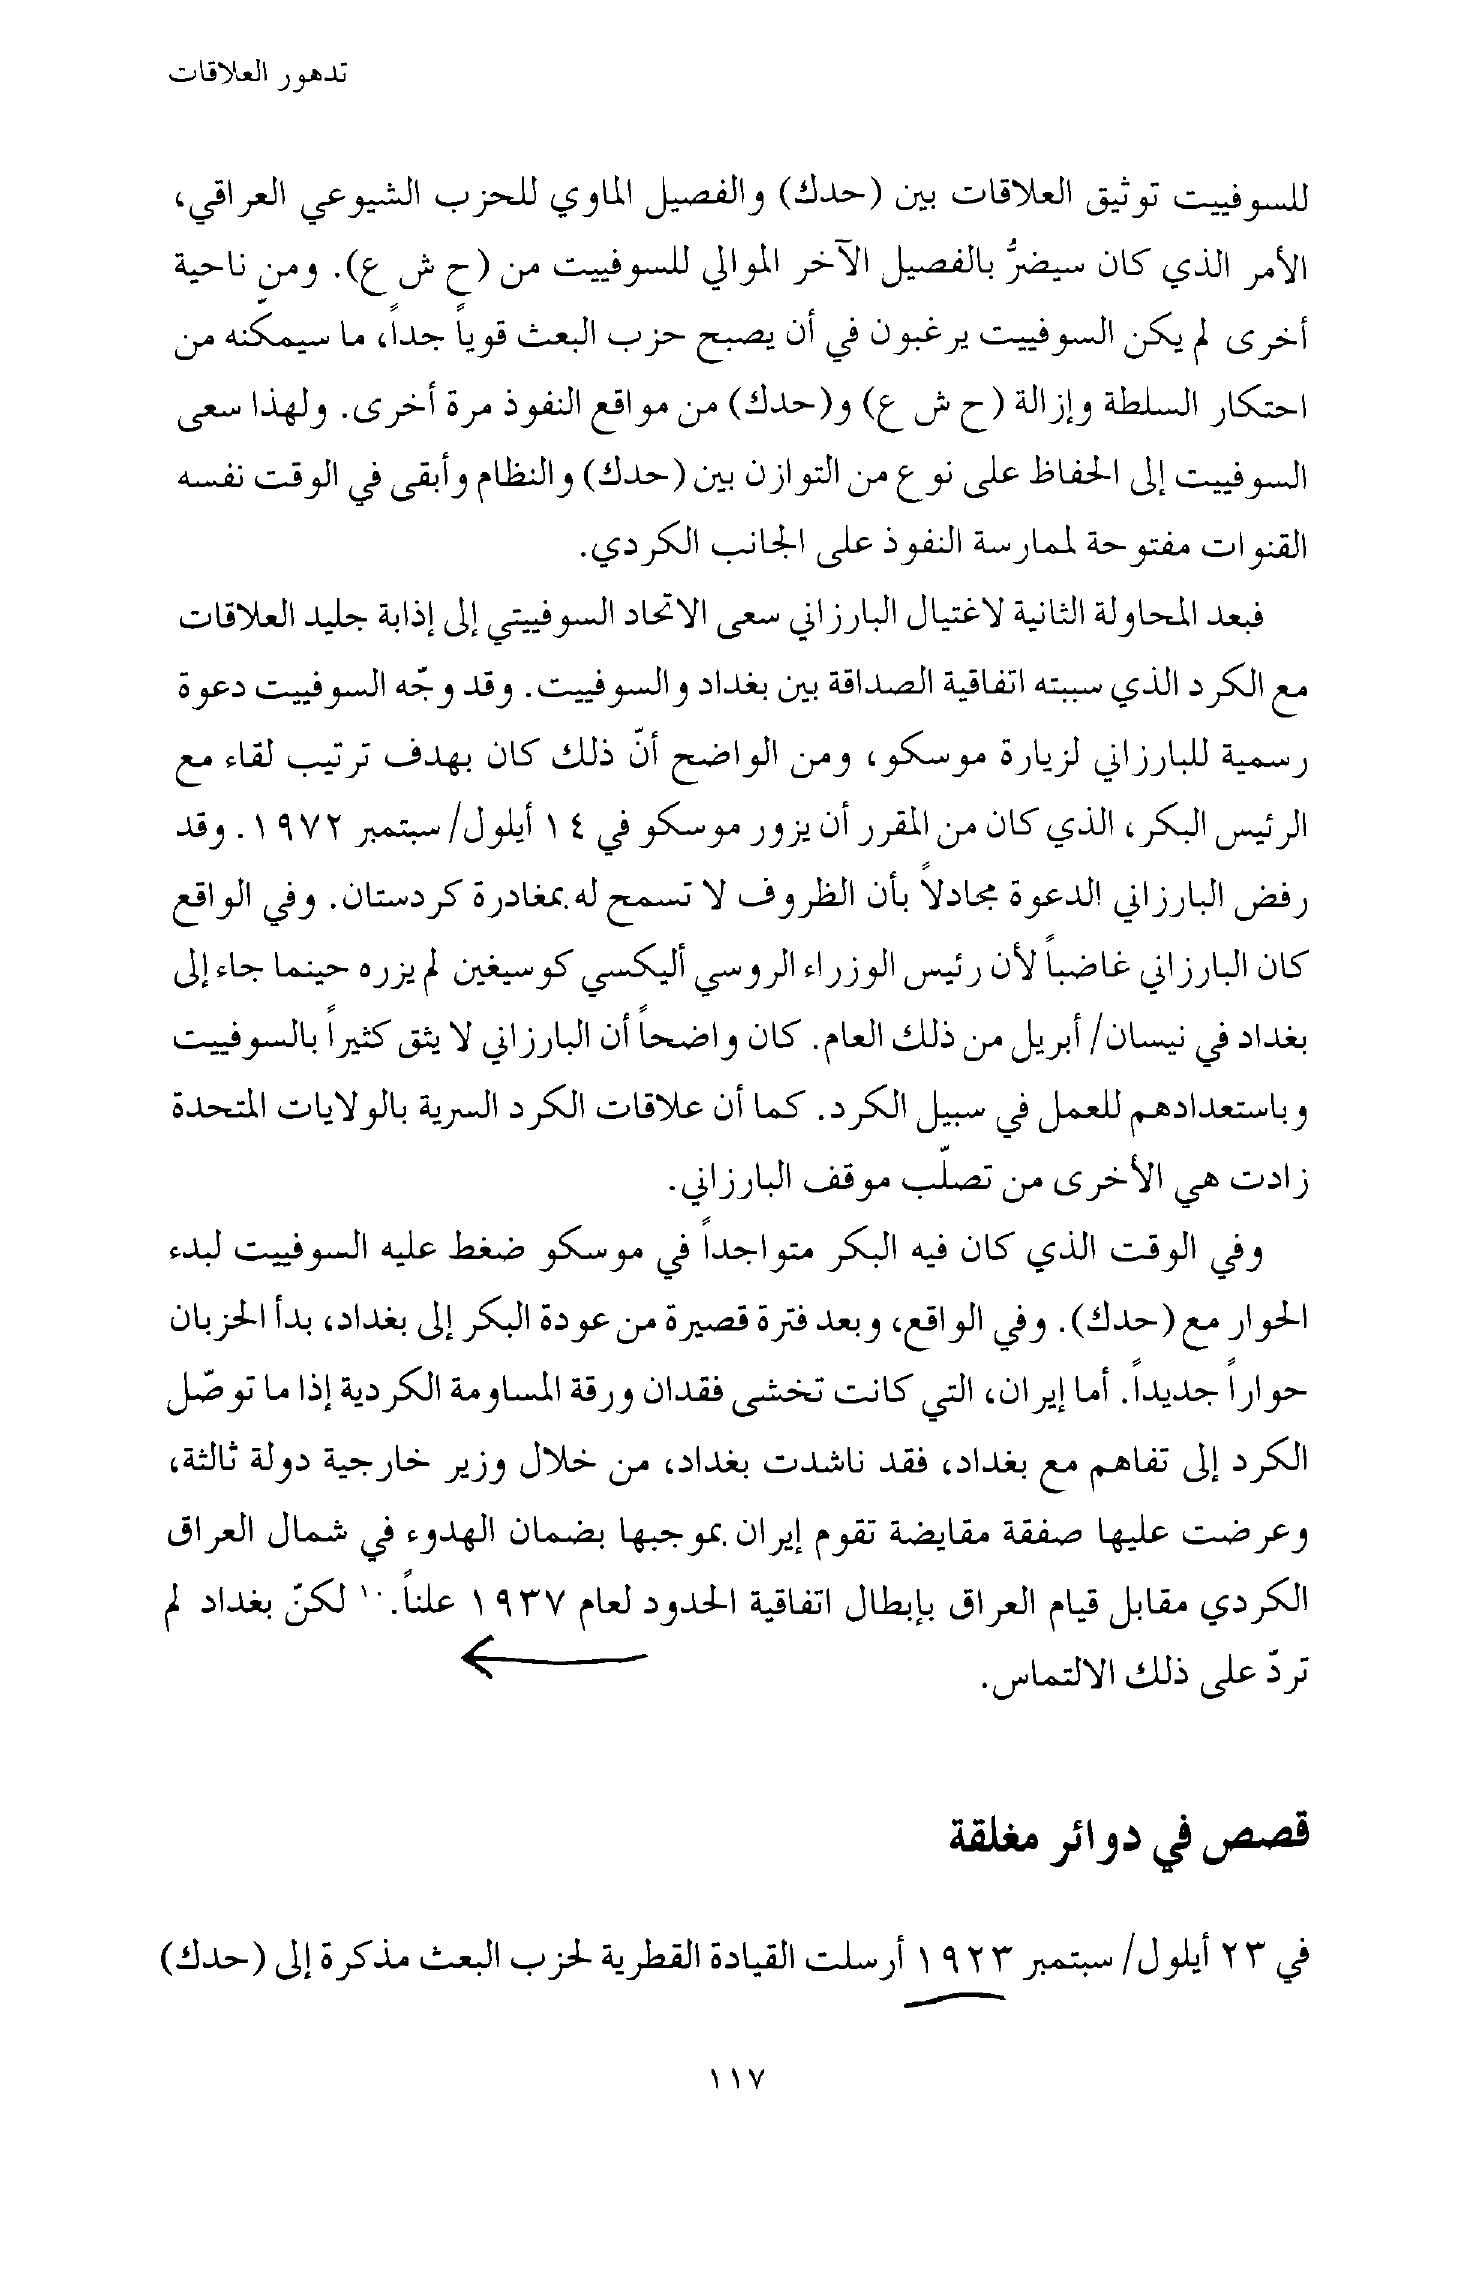 تدهور العلاقات
للسوفييت توثيق العلاقات بين (حدك) والفصيل الماوي للحزب الشيوعي العراقي،
الأمر الذي كان سيضرُّ بالفصيل الآخر الموالي للسوفييت من (ح ش ع). ومن ناحية
أخرى لم يكن السوفييت يرغبون في أن يصبح حزب البعث قوياً جداً، ما سيمكّنه من
احتكار السلطة وإزالة (ح ش ع) و(حدك) من مواقع النفوذ مرة أخرى. ولهذا سعى
السوفييت إلى الحفاظ على نوع من التوازن بين (حدك) والنظام وأبقى في الوقت نفسه
القنوات مفتوحة لممارسة النفوذ على الجانب الكردي.
فبعد المحاولة الثانية لاغتيال البارزاني سعى الاتحاد السوفييتي إلى إذابة جليد العلاقات
مع الكرد الذي سببته اتفاقية الصداقة بين بغداد والسوفييت. وقد وجّه السوفييت دعوة
رسمية للبارزاني لزيارة موسكو، ومن الواضح أنّ ذلك كان بهدف ترتيب لقاء مع
الرئيس البكر، الذي كان من المقرر أن يزور موسكو في ١٤ أيلول/سبتمبر ١٩٧٢. وقد
رفض البارزاني الدعوة مجادلاً بأن الظروف لا تسمح له بمغادرة كردستان. وفي الواقع
كان البارزاني غاضباً لأن رئيس الوزراء الروسي أليكسي كوسيغين لم يزره حينما جاء إلى
بغداد في نيسان/ أبريل من ذلك العام. كان واضحاً أن البارزاني لا يثق كثيراً بالسوفييت
وباستعدادهم للعمل في سبيل الكرد. كما أن علاقات الكرد السرية بالولايات المتحدة
زادت هي الأخرى من تصلّب موقف البارزاني.
وفي الوقت الذي كان فيه البكر متواجداً في موسكو ضغط عليه السوفييت لبدء
الحوار مع (حدك). وفي الواقع، وبعد فترة قصيرة من عودة البكر إلى بغداد، بدأ الحزبان
حواراً جديداً. أما إيران، التي كانت تخشى فقدان ورقة المساومة الكردية إذا ما توصّل
الكرد إلى تفاهم مع بغداد، فقد ناشدت بغداد، من خلال وزير خارجية دولة ثالثة،
وعرضت عليها صفقة مقايضة تقوم إيران بموجبها بضمان الهدوء في شمال العراق
الكردي مقابل قيام العراق بإبطال اتفاقية الحدود لعام ١٩٣٧ علناً.١٠ لكنّ بغداد لم
تردّ على ذلك الالتماس.
قصص في دوائر مغلقة
في ٢٣ أيلول/ سبتمبر ١٩٢٣ أرسلت القيادة القطرية لحزب البعث مذكرة إلى (حدك)
١١٧